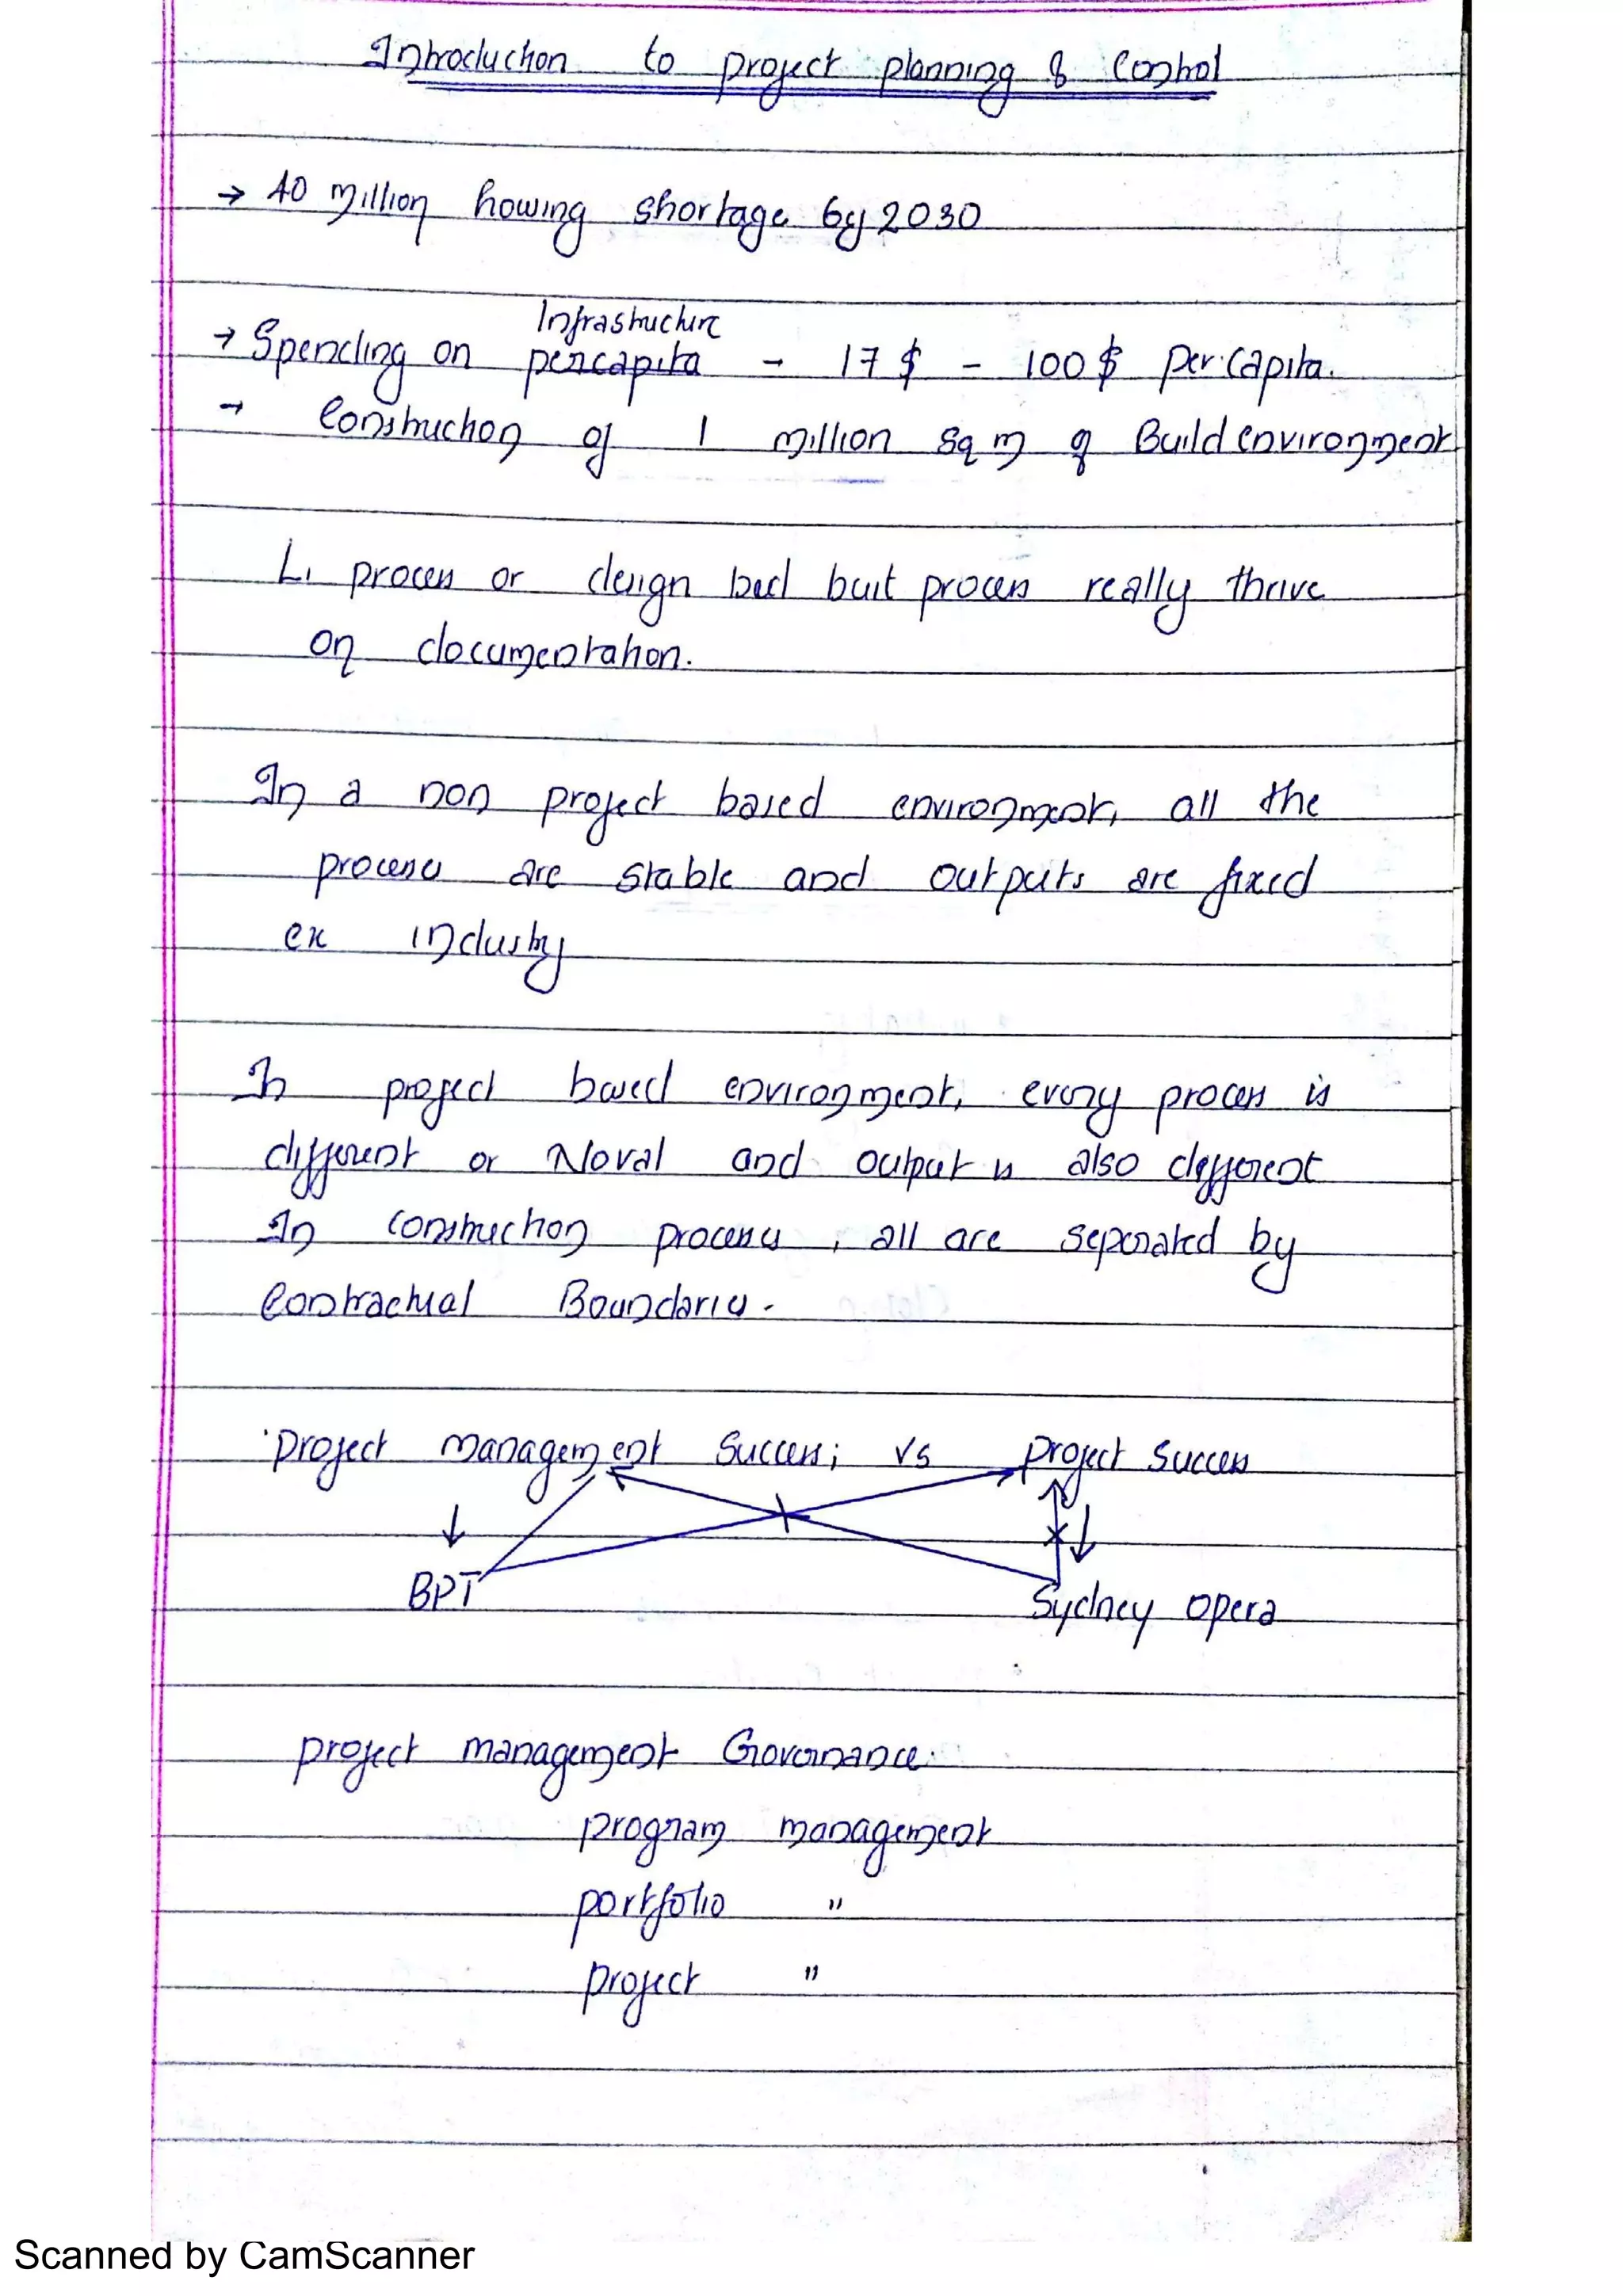 Introduction to project planning & Control
→ 40 million housing shortage by 2030
Infrastructure
→ Spending on percapita - 17 $ - 100 $ per capita.
→ Construction of 1 million sq m of Build environment
L, process or design bed buit process really thrive
on documentation.
In a non project based environment, all the
process are stable and outputs are fixed
ex industry
In project based environment, every process is
different or Noval and output is also different
In construction process, all are seperated by
Contractual Boundaries.
project management success; vs project success
↓ ↓
BPT Sydney opera
project management Governance.
program management
portfolio "
project "
Scanned by CamScanner